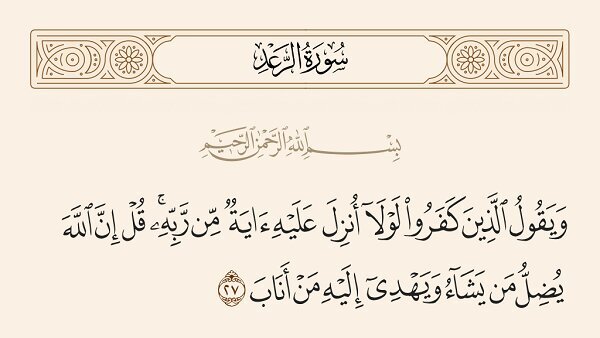 سُورَةُ الرَّعْدِ
بِسْمِ ٱللَّهِ ٱلرَّحْمَٰنِ ٱلرَّحِيمِ
وَيَقُولُ ٱلَّذِينَ كَفَرُوا۟ لَوْلَآ أُنزِلَ عَلَيْهِ ءَايَةٌ مِّن رَّبِّهِۦ ۗ قُلْ إِنَّ ٱللَّهَ
يُضِلُّ مَن يَشَآءُ وَيَهْدِىٓ إِلَيْهِ مَنْ أَنَابَ ٢٧